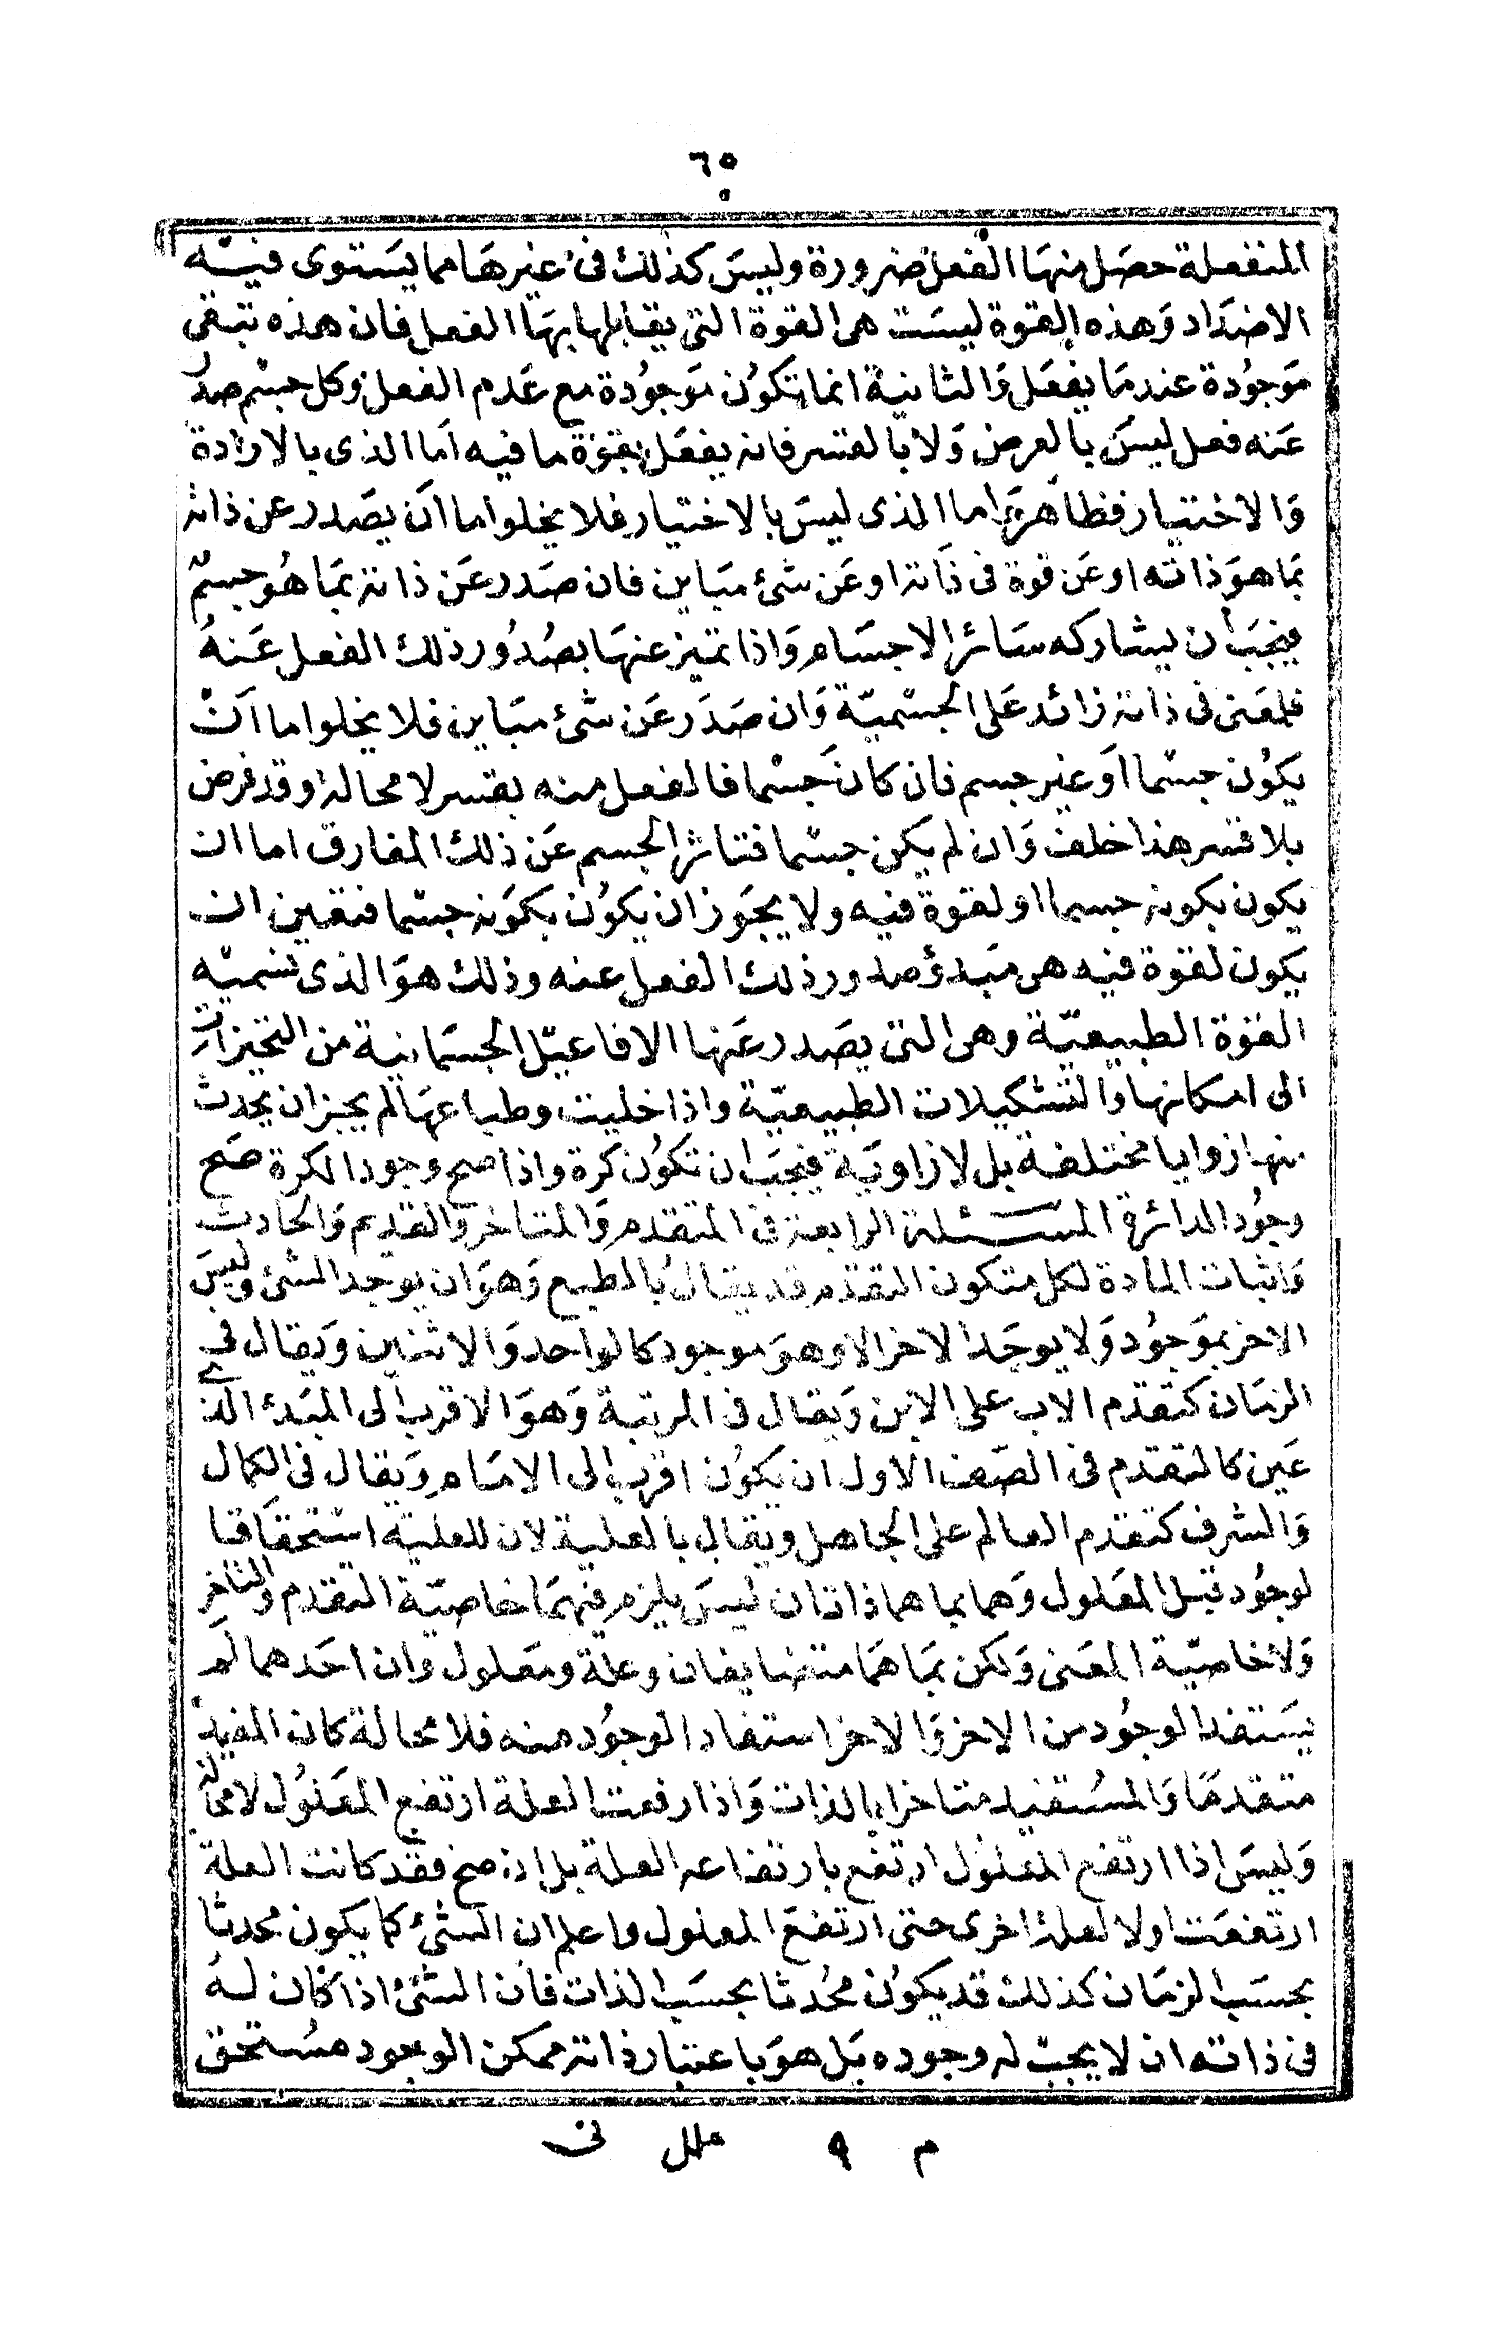 ٦٥
المنفعلة حصل منها الفعل ضرورة وليس كذلك فى غيرها مما يستوى فيه
الاضداد وهذه القوة ليست هى القوة التى يقابلها بها الفعل فان هذه تبقى
موجودة عند ما يفعل والثانية انما تكون موجودة مع عدم الفعل وكل جسم صدر
عنه فعل ليس بالعرض ولا بالقسر فانه يفعل بقوة ما فيه اما الذى بالارادة
والاختيار فظاهر واما الذى ليس بالاختيار فلا يخلوا اما ان يصدر عن ذاته
بما هو ذاته او عن قوة فى ذاته او عن شئ مباين فان صدر عن ذاته بما هو جسم
فيجب ان يشاركه سائر الاجسام واذا تميز عنها بصدور ذلك الفعل عنه
فلمعنى فى ذاته زائد على الجسمية وان صدر عن شئ مباين فلا يخلوا اما ان
يكون جسما او غير جسم فان كان جسما فالفعل منه بقسر لا محالة وقد فرض
بلا قسر هذا خلف وان لم يكن جسما فتاثر الجسم عن ذلك المفارق اما ان
يكون بكونه جسما او لقوة فيه ولا يجوز ان يكون بكونه جسما فتعين ان
يكون لقوة فيه هى مبدؤ صدور ذلك الفعل عنه وذلك هو الذى نسميه
القوة الطبيعية وهى التى يصدر عنها الافاعيل الجسمانية من التحيزات
الى امكانها والتشكيلات الطبيعية واذا خليت وطباعها لم يجز ان يحدث
منها زوايا مختلفة بل لا زاوية فيجب ان تكون كرة واذا صح وجود الكرة صح
وجود الدائرة المسئلة الرابعة فى المتقدم والمتاخر والقديم والحادث
واثبات المادة لكل متكون التقدم قد يقال بالطبع وهو ان يوجد الشئ وليس
الاخر بموجود ولا يوجد الاخر الا وهو موجود كالواحد والاثنين ويقال فى
الزمان كتقدم الاب على الابن ويقال فى المرتبة وهو الاقرب الى المبدء الذى
عين كالتقدم فى الصف الاول ان يكون اقرب الى الامام ويقال فى الكمال
والشرف كتقدم العالم على الجاهل ويقال بالعلية لان للعلية استحقاقا
لوجود قبل المعلول وهما بما هما ذاتان ليس يلزم فيهما خاصية التقدم والتاخر
ولا خاصية المعنى ولكن بما هما متضايفان وعلة ومعلول وان احدهما لم
يستفد الوجود من الاخر والاخر استفاد الوجود منه فلا محالة كان المفيد
متقدما والمستفيد متاخرا بالذات واذا رفعت العلة ارتفع المعلول لا محالة
وليس اذا ارتفع المعلول ارتفع بارتفاعه العلة بل ان صح فقد كانت العلة
ارتفعت اولا لعلة اخرى حتى ارتفع المعلول واعلم ان الشئ كما يكون محدثا
بحسب الزمان كذلك قد يكون محدثا بحسب الذات فان الشئ اذا كان له
فى ذاته ان لا يجب له وجوده بل هو باعتبار ذاته ممكن الوجود مستحق
م ٩ ملل نى